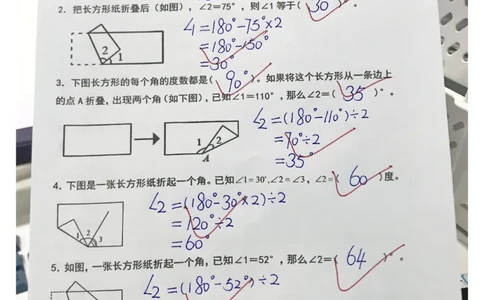 2. 把长方形纸折叠后（如图），∠2=75°，则∠1等于( 30 )°。
∠1=180°-75°×2
=180°-150°
=30°
2
1
3. 下图长方形的每个角的度数都是( 90° )。如果将这个长方形从一条边上
的点A折叠，出现两个角(如下图)，已知∠1=110°，那么∠2=( 35 )°。
∠2=(180°-110°)÷2
=70°÷2
=35°
1 2
A
4. 下图是一张长方形纸折起一个角。已知∠1=30°,∠2=∠3，∠2=( 60 )度。
∠2=(180°-30°×2)÷2
=120°÷2
=60°
1 2 3
5. 如图，一张长方形纸折起一个角，已知∠1=52°，那么∠2=( 64 )°。
∠2=(180°-52°)÷2